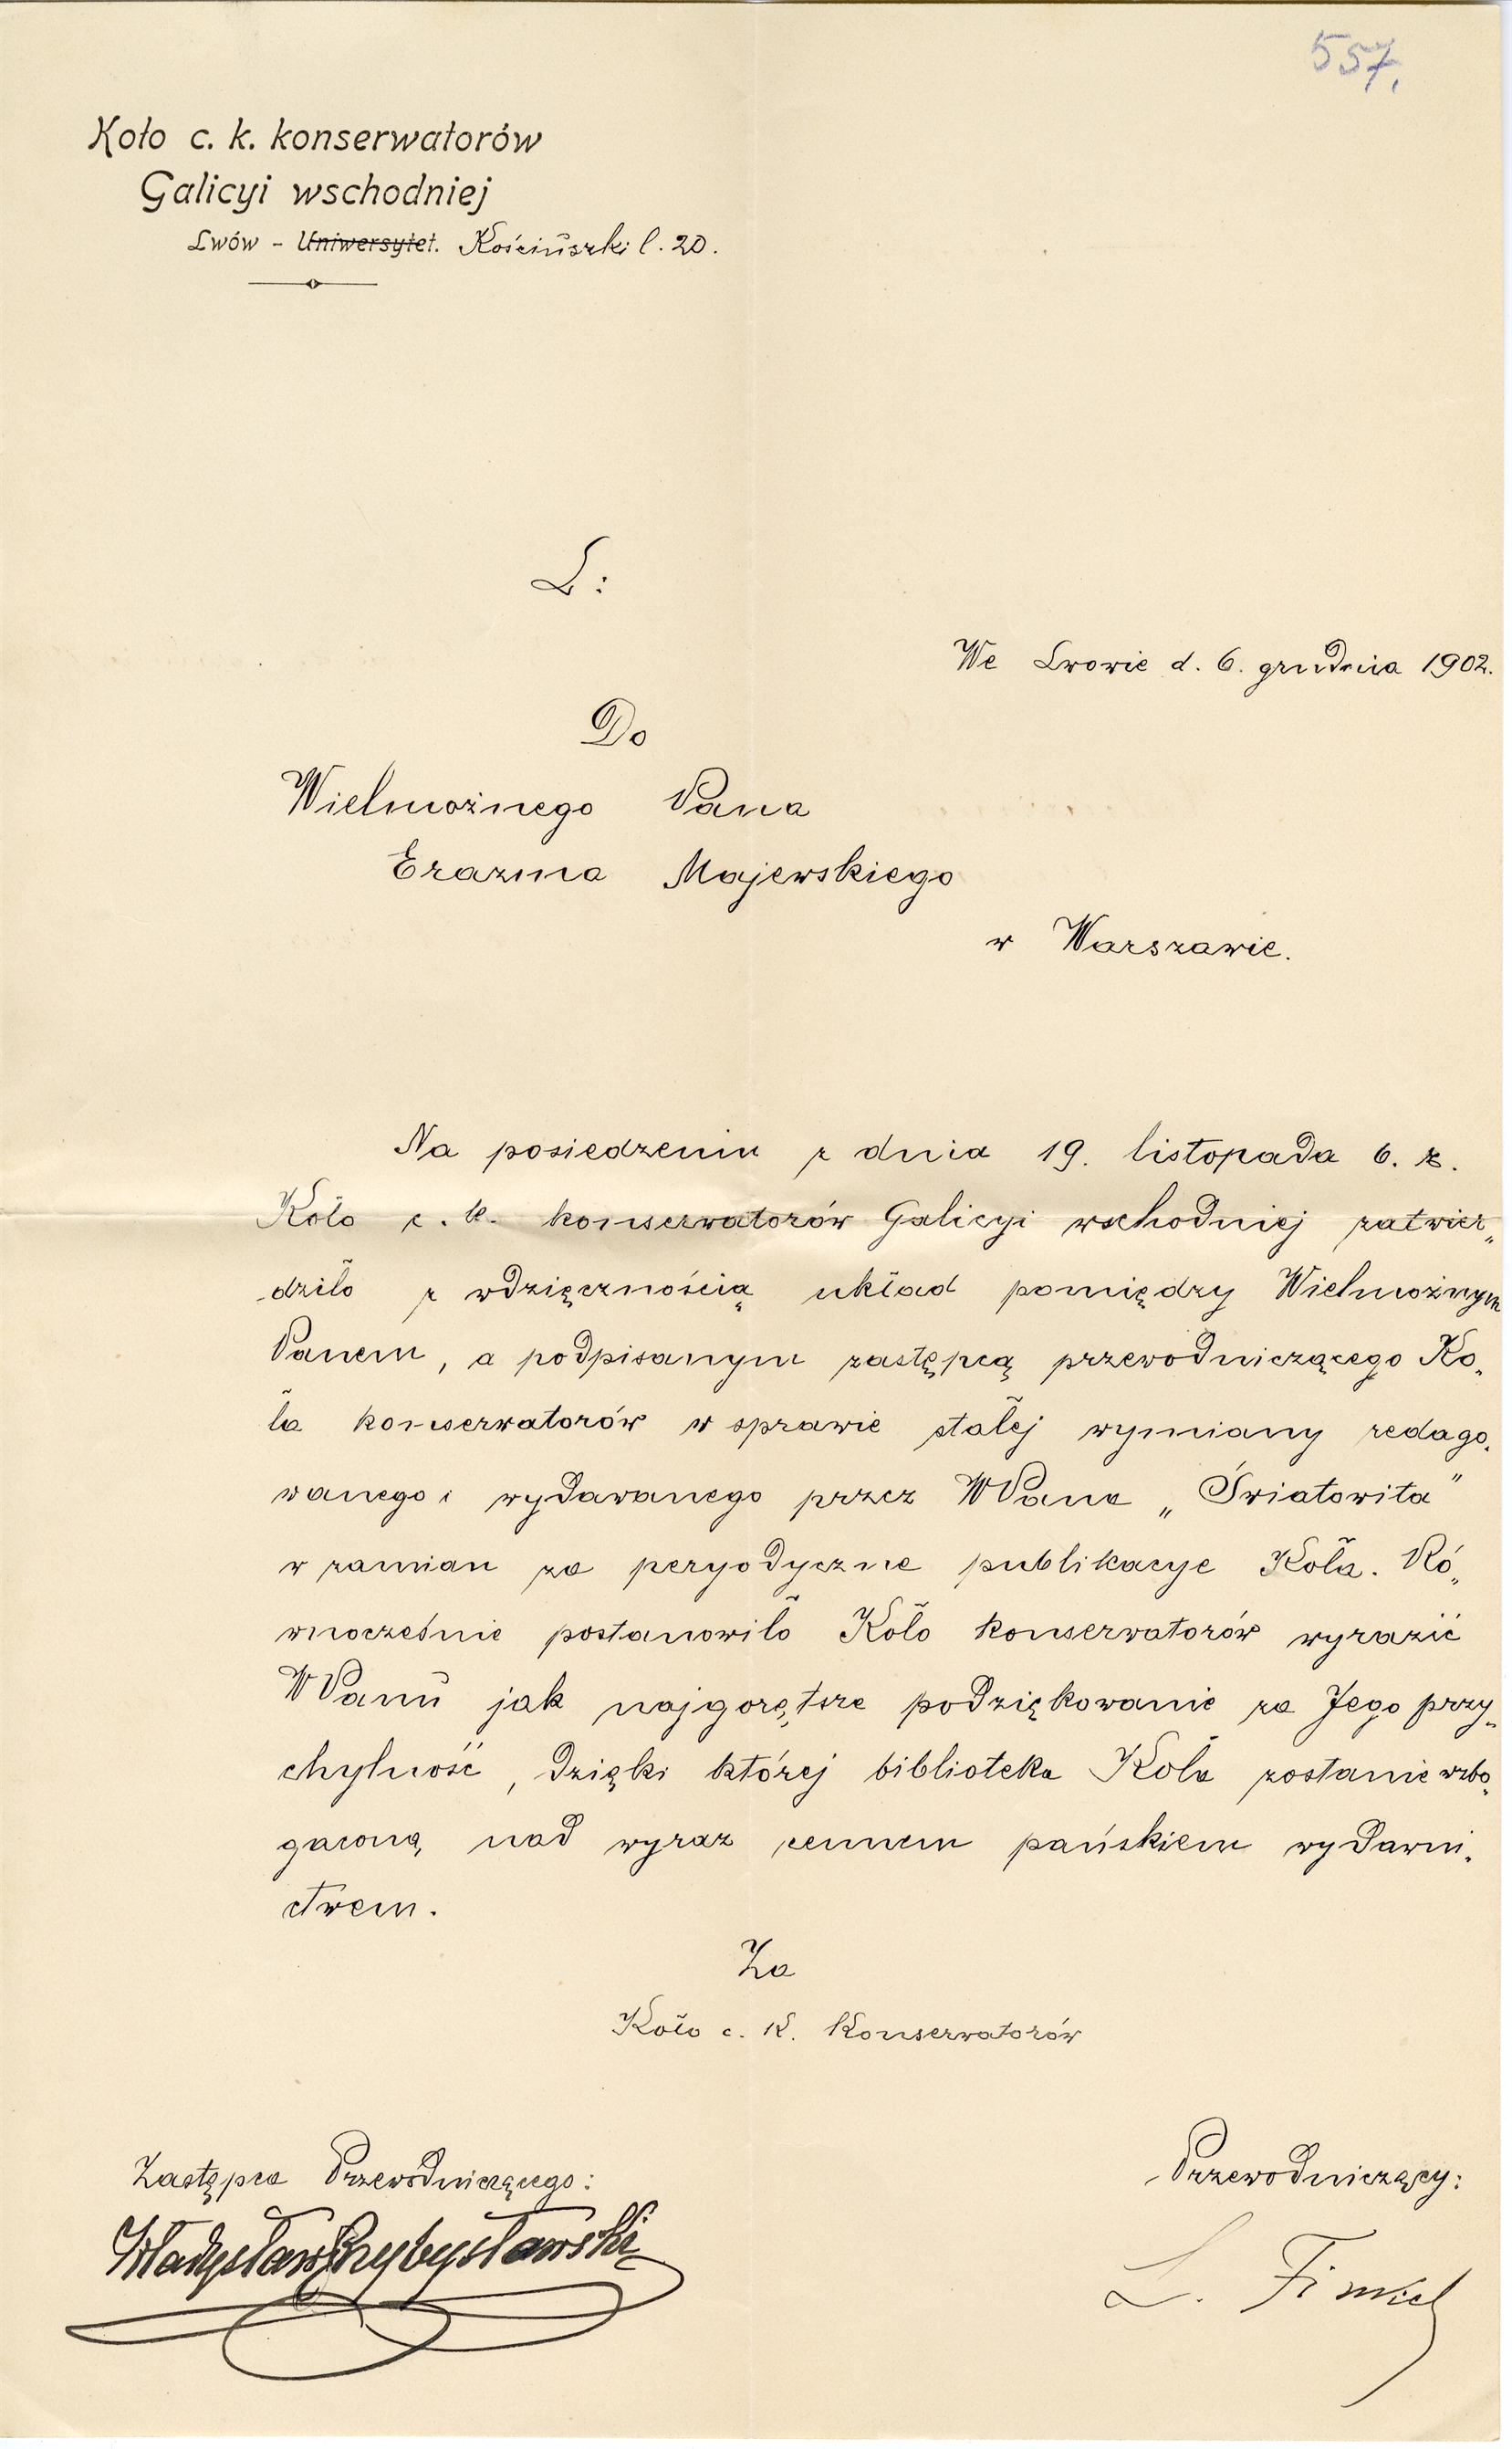 557.
Koło c. k. konserwatorów
Galicyi wschodniej
Lwów - Uniwersytet. Kościuszki l. 20.
L:
We Lwowie d. 6. grudnia 1902.
Do
Wielmożnego Pana
Erazma Majewskiego
w Warszawie.
Na posiedzeniu z dnia 19. listopada b. r.
Koło c. k. konserwatorów Galicyi wschodniej zatwier„
dziło z wdzięcznością układ pomiędzy Wielmożnym
Panem, a podpisanym zastępcą przewodniczącego Ko„
ła konserwatorów w sprawie stałej wymiany redago„
wanego i wydawanego przez WPana „Światowita"
w zamian za peryodyczne publikacye Koła. Ró„
wnocześnie postanowiło Koło konserwatorów wyrazić
WPanu jak najgorętsze podziękowanie za Jego przy„
chylność, dzięki której biblioteka Koła zostanie wzbo„
gaconą nad wyraz cennem pańskiem wydawni„
ctwem.
Za
Koło c. k. Konserwatorów
Zastępca Przewodniczącego:
Przewodniczący:
Władysław Przybysławski
L. Finkel